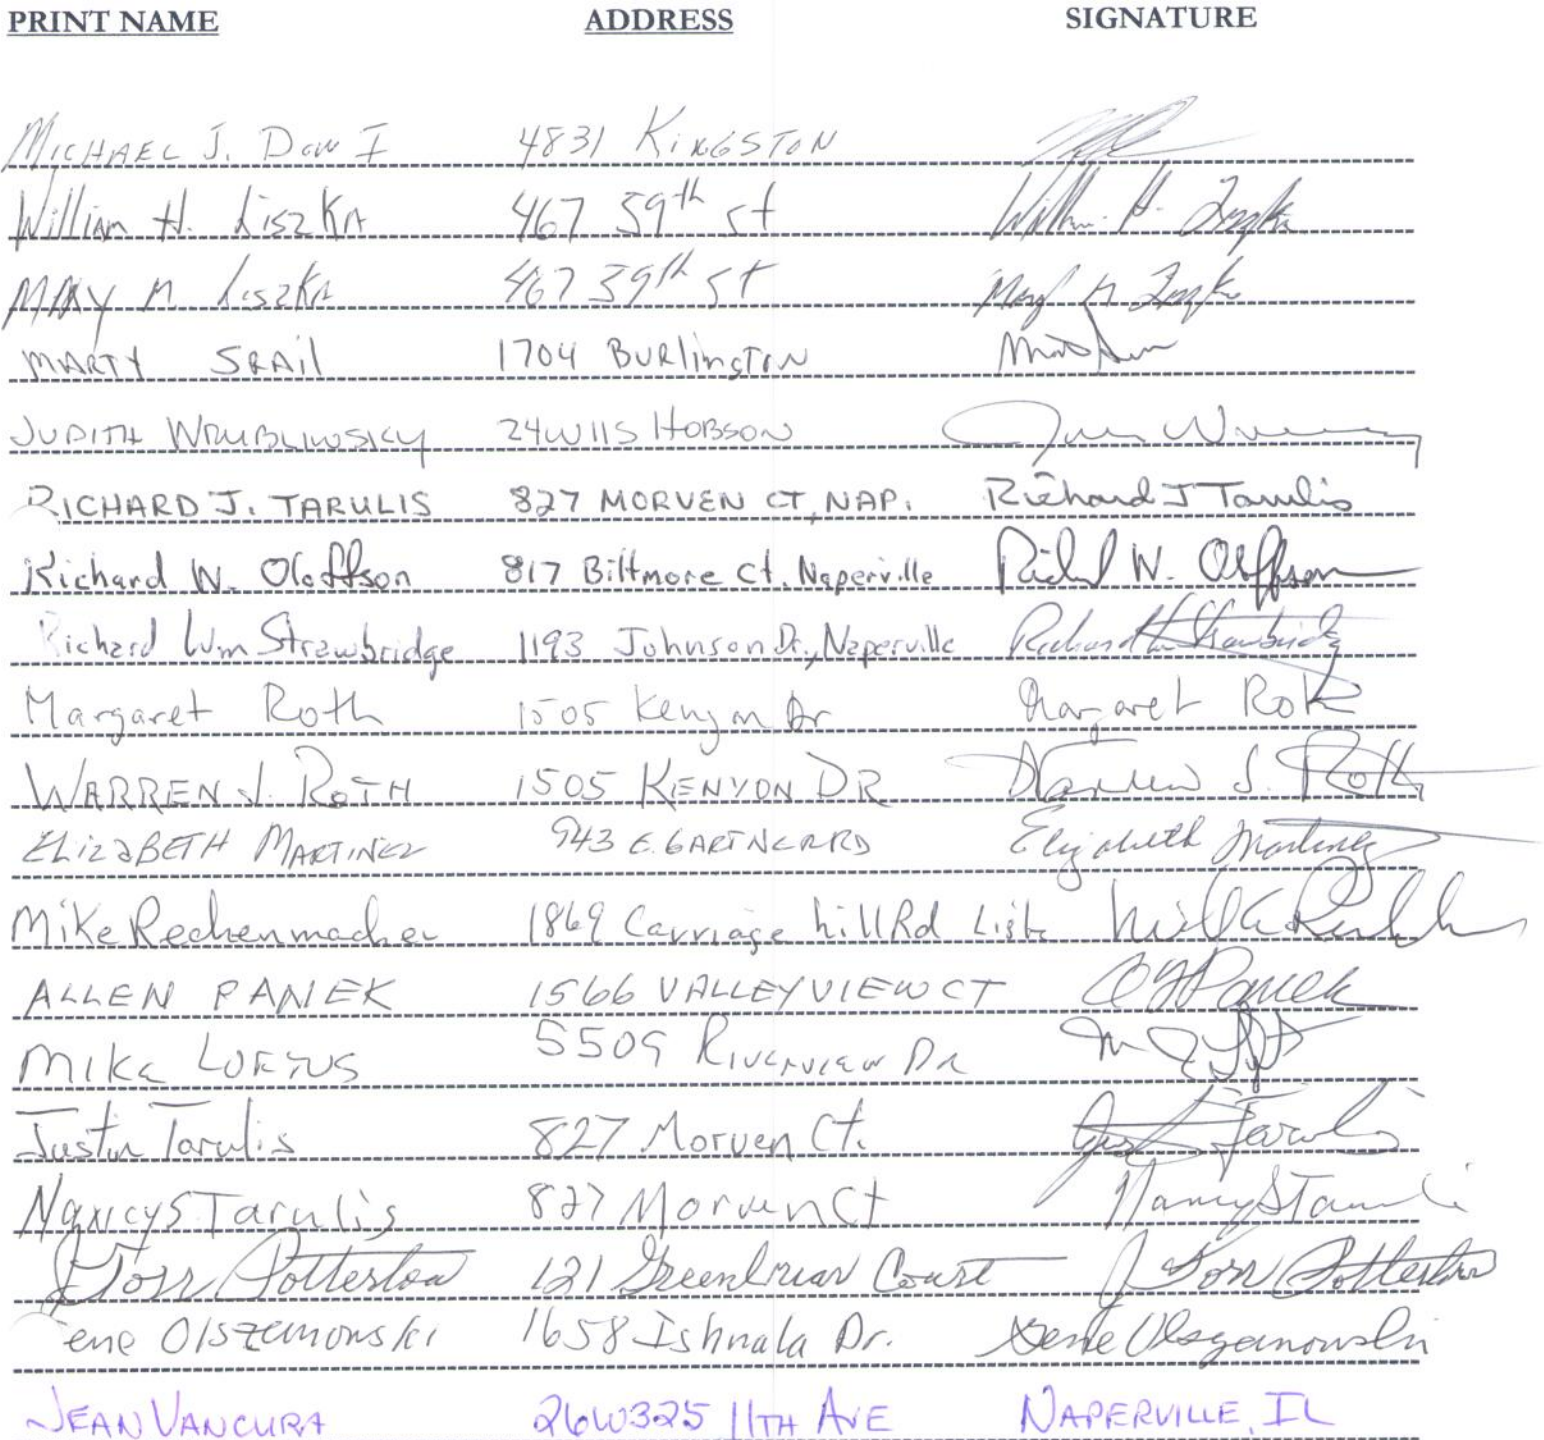 PRINT NAME ADDRESS SIGNATURE
MICHAEL J. DOW I 4831 KINGSTON
William H. LiszKA 467 59th st William H. Liszka
MARY M LiszKA 467 59th ST Mary M Liszka
MARTY SRAIL 1704 BURlingTON
JUDITH WRUBLIWSKY 24W115 HOBSON
RICHARD J. TARULIS 827 MORVEN CT, NAP. Richard J Tarulis
Richard W. Oloffson 817 Biltmore Ct. Naperville Richard W. Oloffson
Richard Wm Strawbridge 1193 Johnson Dr., Naperville Richard Wm Strawbridge
Margaret Roth 1505 Kenyon Dr Margaret Roth
WARREN J. ROTH 1505 KENYON DR Warren J. Roth
ELIZABETH MARTINEZ 943 E. GARTNER RD Elizabeth Martinez
Mike Rechenmacher 1869 Carriage hill Rd Lisle
ALLEN PANEK 1566 VALLEYVIEW CT Panek
MIKE LOFTUS 5509 RIVERVIEW DR
Justin Tarulis 827 Morven Ct. Tarulis
Nancy S Tarulis 827 Morven Ct Nancy S Tarulis
J Torr Potterton 121 Greenbriar Court J Torr Potterton
Gene Olszanowski 1658 Ishnala Dr. Gene Olszanowski
JEAN VANCURA 26W325 11TH AVE NAPERVILLE, IL